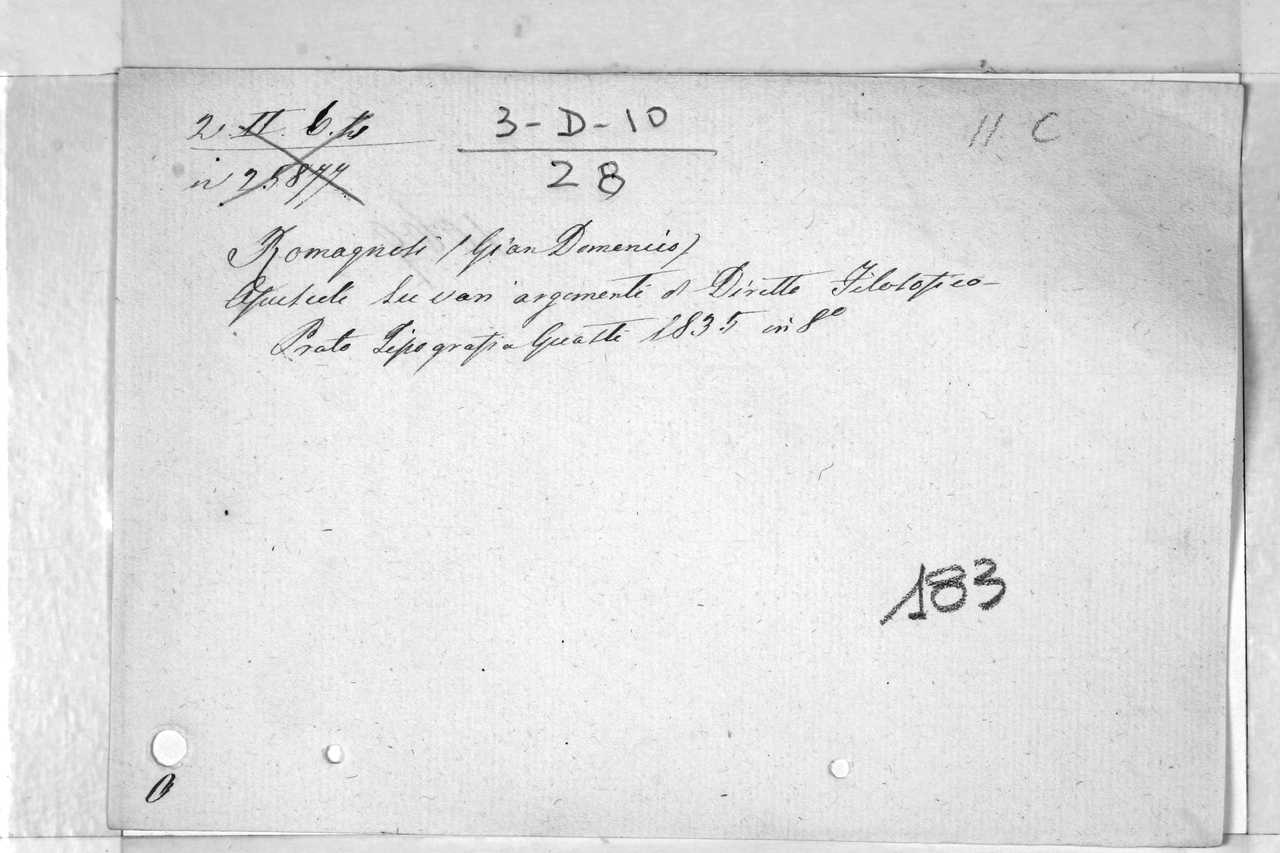 2. II. 6.
3-D-10
11 C
n 25877
28
Romagnosi (Gian Domenico)
Opuscoli su vari argomenti di Diritto Filosofico-
Prato Tipografia Guasti 1835 in 8º
183